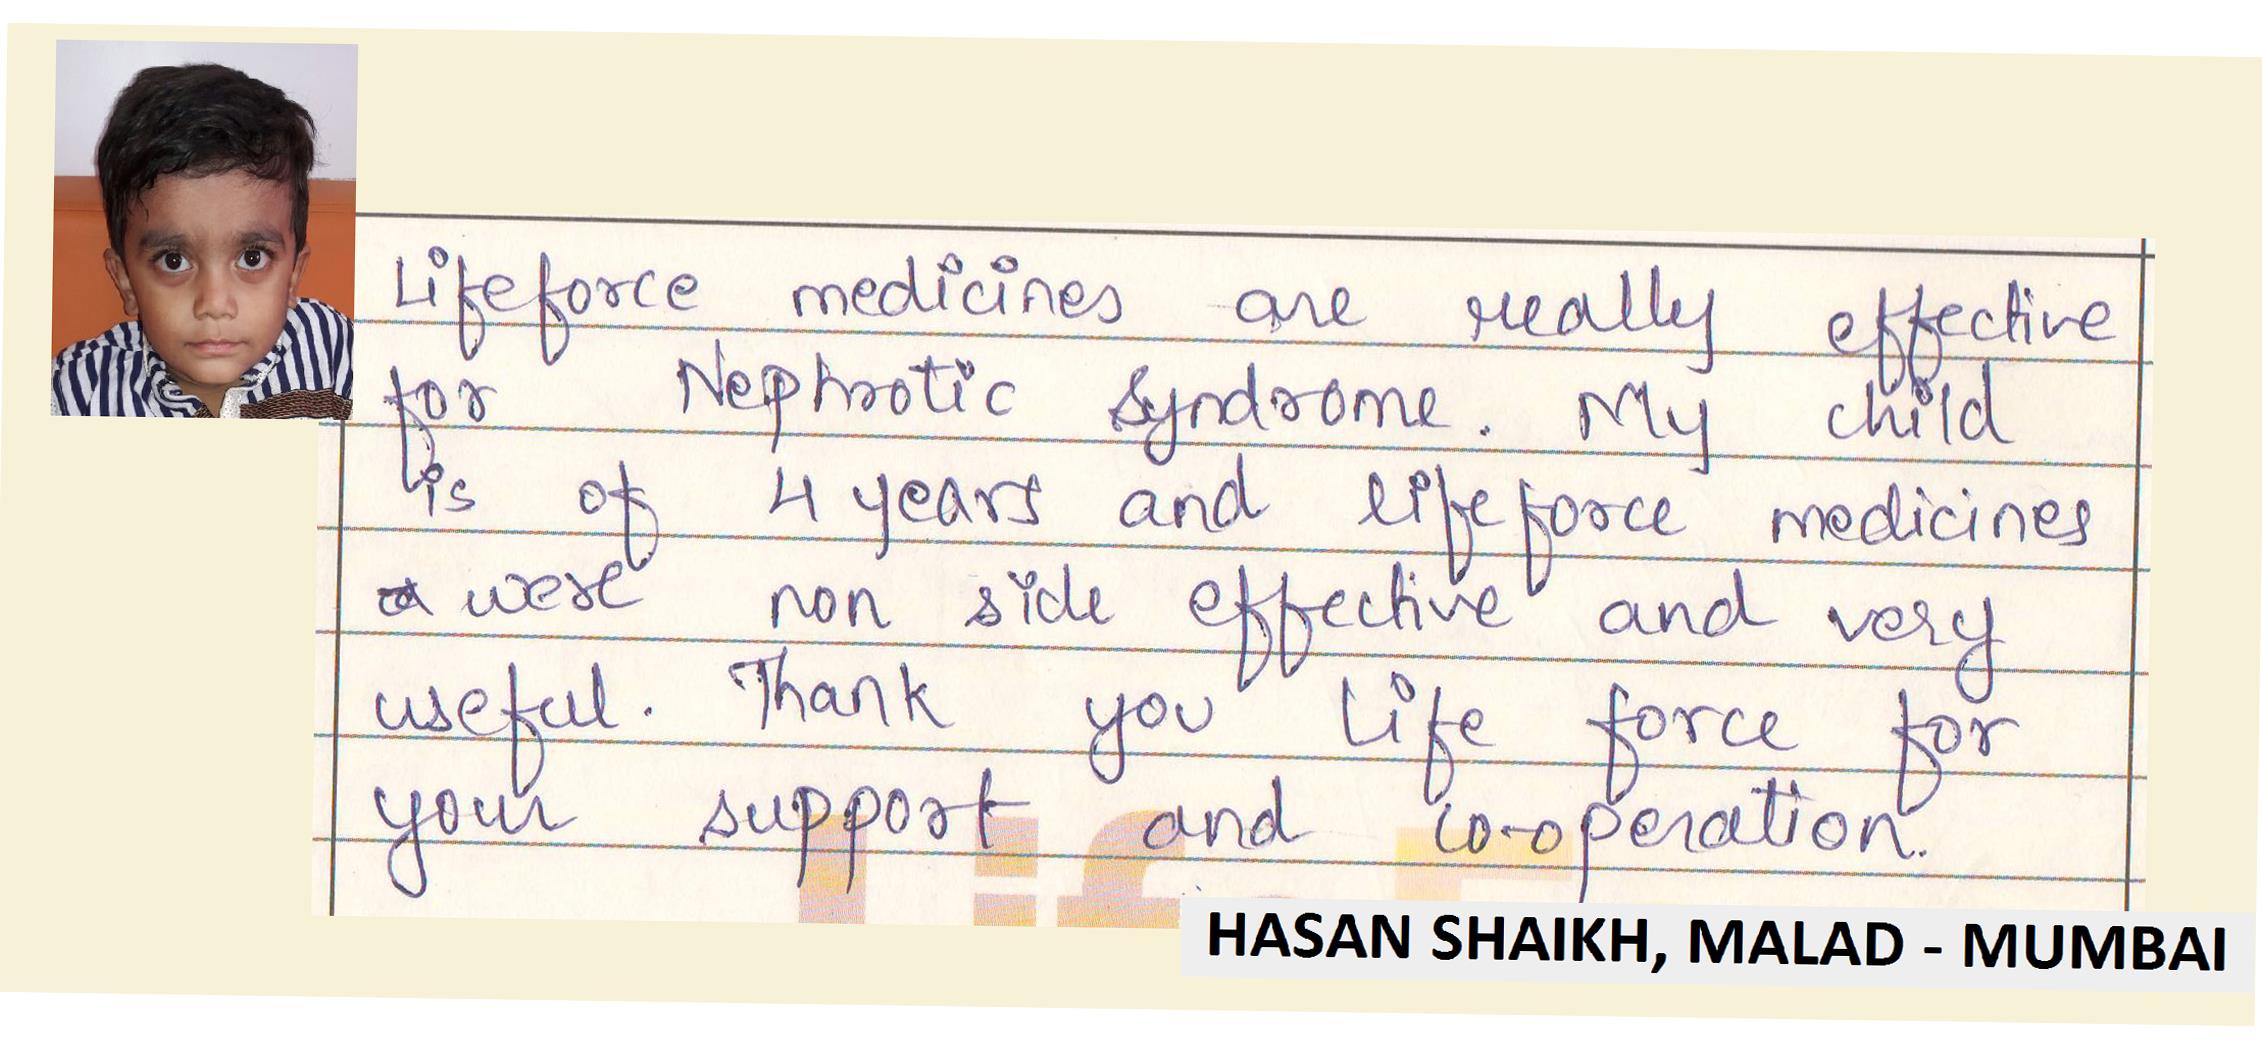 Lifeforce medicines are really effective
for Nephrotic Syndrome. My child
is of 4 years and lifeforce medicines
were non side effective and very
useful. Thank you Life force for
your support and co-operation.
HASAN SHAIKH, MALAD - MUMBAI